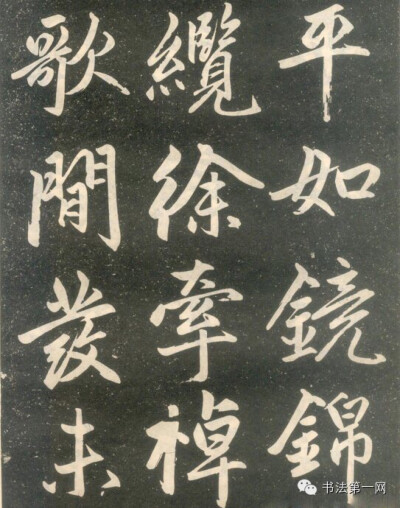 平如鏡錦
纜徐牽棹
歌閒發未
书法第一网